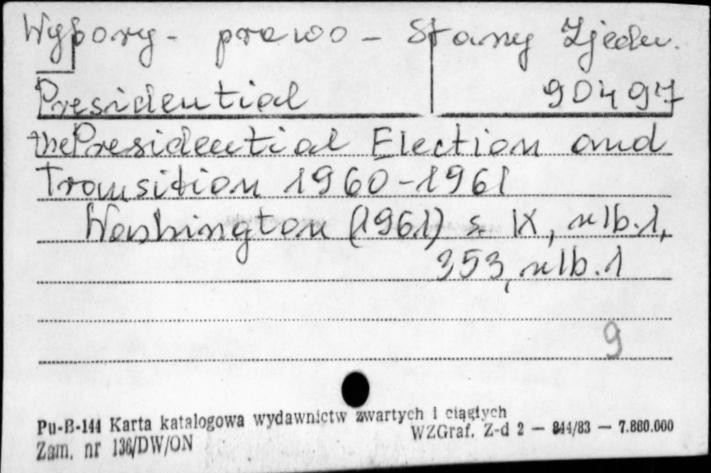 Wybory - prawo - Stany Zjedn.
Presidential 90497
the Presidential Election and
Transition 1960-1961
Washington (1961) s. IX, nlb.1,
353, nlb.1
9
Pu-B-144 Karta katalogowa wydawnictw zwartych i ciągłych
WZGraf. Z-d 2 — 844/83 — 7.880.000
Zam. nr 136/DW/ON